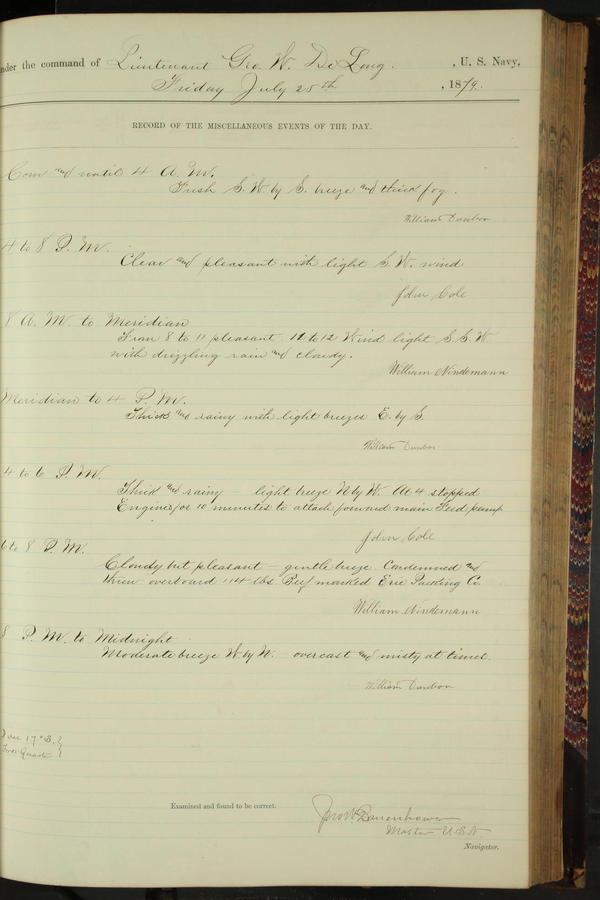 nder the command of Lieutenant Geo. W. De Long. , U. S. Navy,
Friday July 25th , 1879.
RECORD OF THE MISCELLANEOUS EVENTS OF THE DAY.
Com and until 4 A. M.
Fresh S. W. by S. breeze and thick fog.
William Dunbar
4 to 8 P. M.
Clear and pleasant with light S. W. wind
John Cole
8 A. M. to Meridian
From 8 to 11 pleasant, 11 to 12 Wind light S. S. W
with drizzling rain and cloudy.
William Nindemann
Meridian to 4 P. M.
Thick and rainy with light breezes E. by S.
William Dunbar
4 to 6 P. M.
Thick and rainy – light breeze N by W. At 4 stopped
Engines for 10 minutes to attach forward main Feed pump
John Cole
6 to 8 P. M.
Cloudy but pleasant – gentle breeze. Condemned and
threw overboard 114 lbs Beef marked Erie Packing Co.
William Nindemann
8 P. M. to Midnight
Moderate breeze W. by N. overcast and misty at times.
William Dunbar
17° E. }
Quarter }
Examined and found to be correct.
Jno W Danenhower
Master U.S.N.
Navigator.